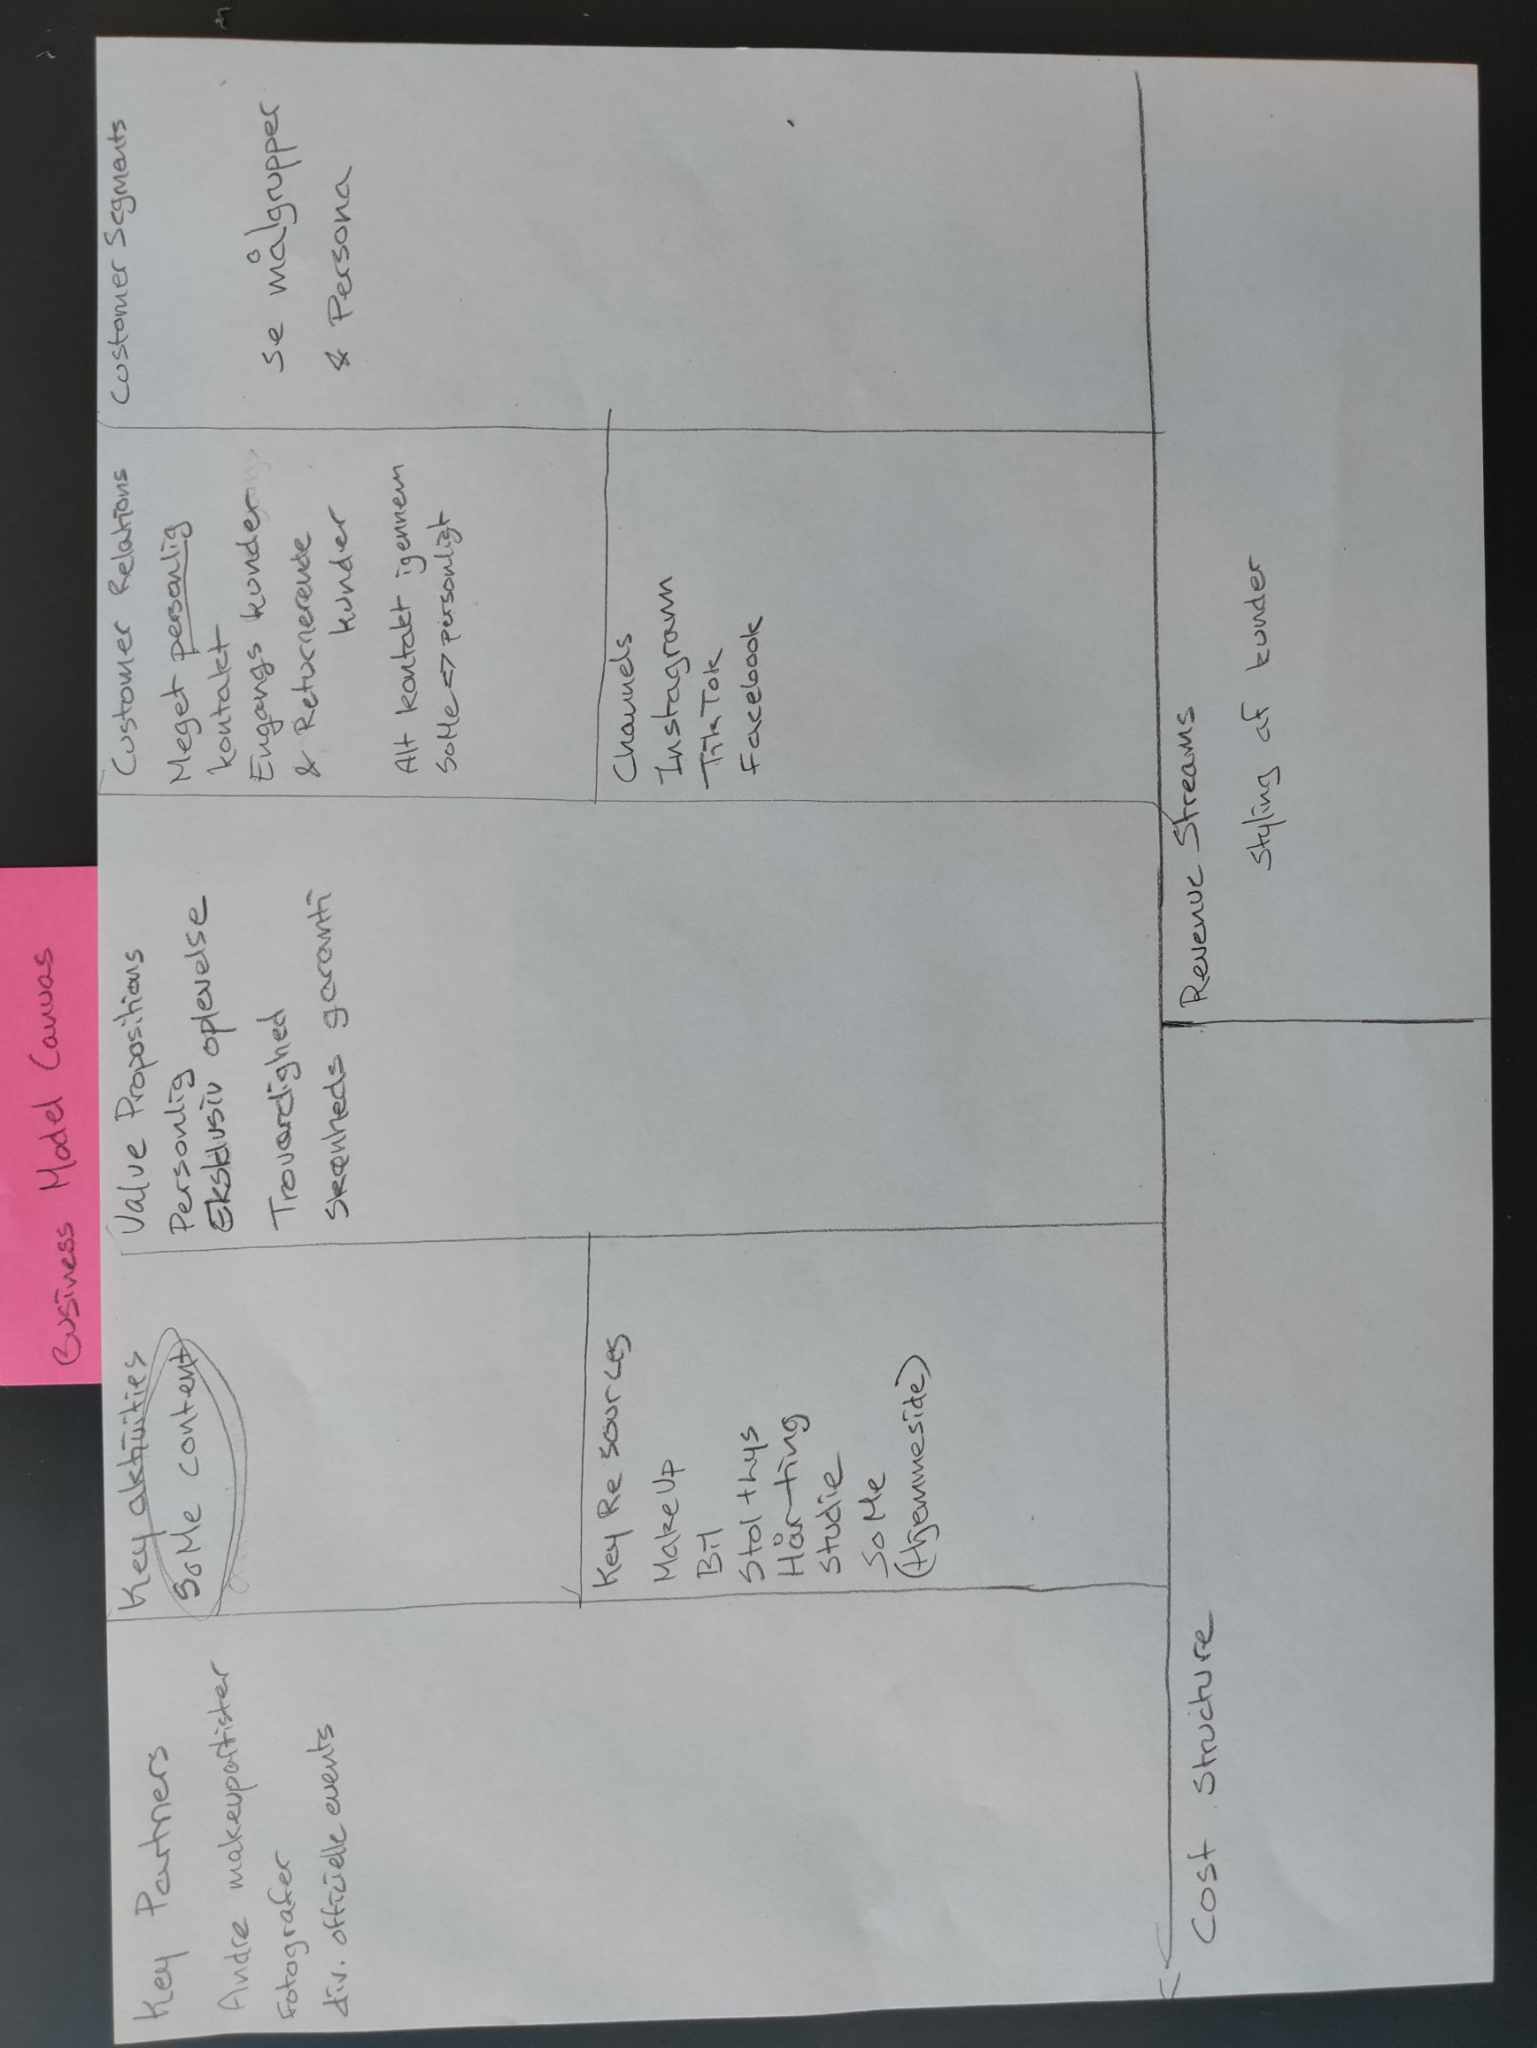 Business Model Canvas
Key Partners
Andre makeupartister
Fotografer
div. officielle events
Key aktivities
SoMe content
Key Resources
MakeUp
Bil
Stol + lys
Hår-ting
Studie
SoMe
(Hjemmeside)
Value Propositions
Personlig
Eksklusiv oplevelse
Troværdighed
Skønheds garanti
Customer Relations
Meget personlig
kontakt
Engangs kunder
& Returnerende
kunder
Alt kontakt igennem
SoMe <=> personligt
Channels
Instagram
TikTok
Facebook
Customer Segments
Se målgrupper
& Persona
Cost Structure
Revenue Streams
Styling af kunder